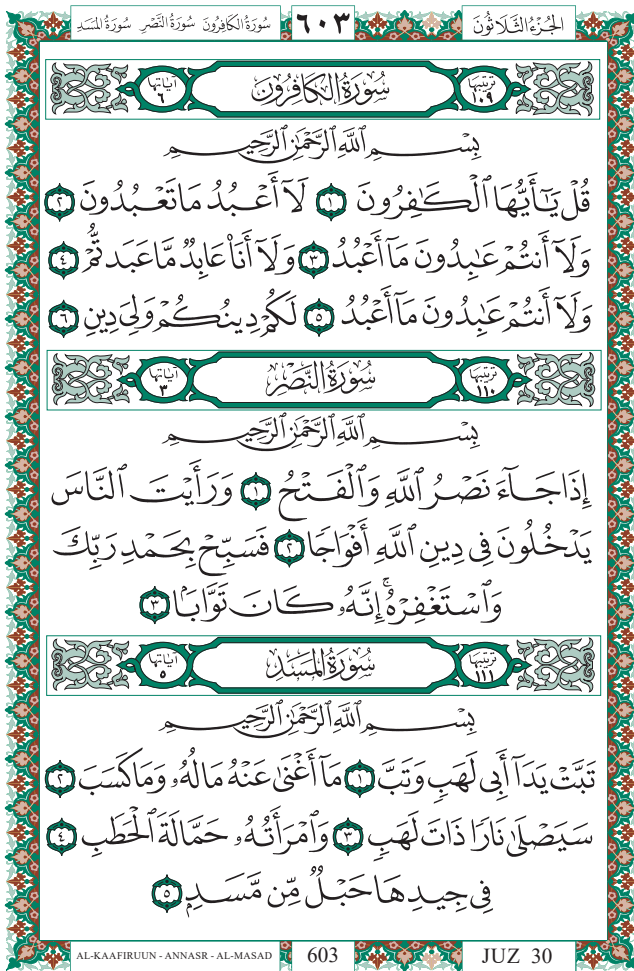 الجُزْءُ الثَّلَاثُونَ
٦٠٣
سُورَةُ الكَافِرُونَ سُورَةُ النَّصْرِ سُورَةُ المَسَدِ
تَرْتِيبُهَا ١٠٩ سُورَةُ الكَافِرُونَ آيَاتُهَا ٦
بِسْمِ ٱللَّهِ ٱلرَّحْمَٰنِ ٱلرَّحِيمِ
قُلْ يَٰٓأَيُّهَا ٱلْكَٰفِرُونَ ١ لَآ أَعْبُدُ مَا تَعْبُدُونَ ٢
وَلَآ أَنتُمْ عَٰبِدُونَ مَآ أَعْبُدُ ٣ وَلَآ أَنَا۠ عَابِدٌ مَّا عَبَدتُّمْ ٤
وَلَآ أَنتُمْ عَٰبِدُونَ مَآ أَعْبُدُ ٥ لَكُمْ دِينُكُمْ وَلِىَ دِينِ ٦
تَرْتِيبُهَا ١١٠ سُورَةُ النَّصْرِ آيَاتُهَا ٣
بِسْمِ ٱللَّهِ ٱلرَّحْمَٰنِ ٱلرَّحِيمِ
إِذَا جَآءَ نَصْرُ ٱللَّهِ وَٱلْفَتْحُ ١ وَرَأَيْتَ ٱلنَّاسَ
يَدْخُلُونَ فِى دِينِ ٱللَّهِ أَفْوَاجًا ٢ فَسَبِّحْ بِحَمْدِ رَبِّكَ
وَٱسْتَغْفِرْهُ ۚ إِنَّهُۥ كَانَ تَوَّابًۢا ٣
تَرْتِيبُهَا ١١١ سُورَةُ المَسَدِ آيَاتُهَا ٥
بِسْمِ ٱللَّهِ ٱلرَّحْمَٰنِ ٱلرَّحِيمِ
تَبَّتْ يَدَآ أَبِى لَهَبٍ وَتَبَّ ١ مَآ أَغْنَىٰ عَنْهُ مَالُهُۥ وَمَا كَسَبَ ٢
سَيَصْلَىٰ نَارًا ذَاتَ لَهَبٍ ٣ وَٱمْرَأَتُهُۥ حَمَّالَةَ ٱلْحَطَبِ ٤
فِى جِيدِهَا حَبْلٌ مِّن مَّسَدٍۭ ٥
AL-KAAFIRUUN - ANNASR - AL-MASAD 603 JUZ 30